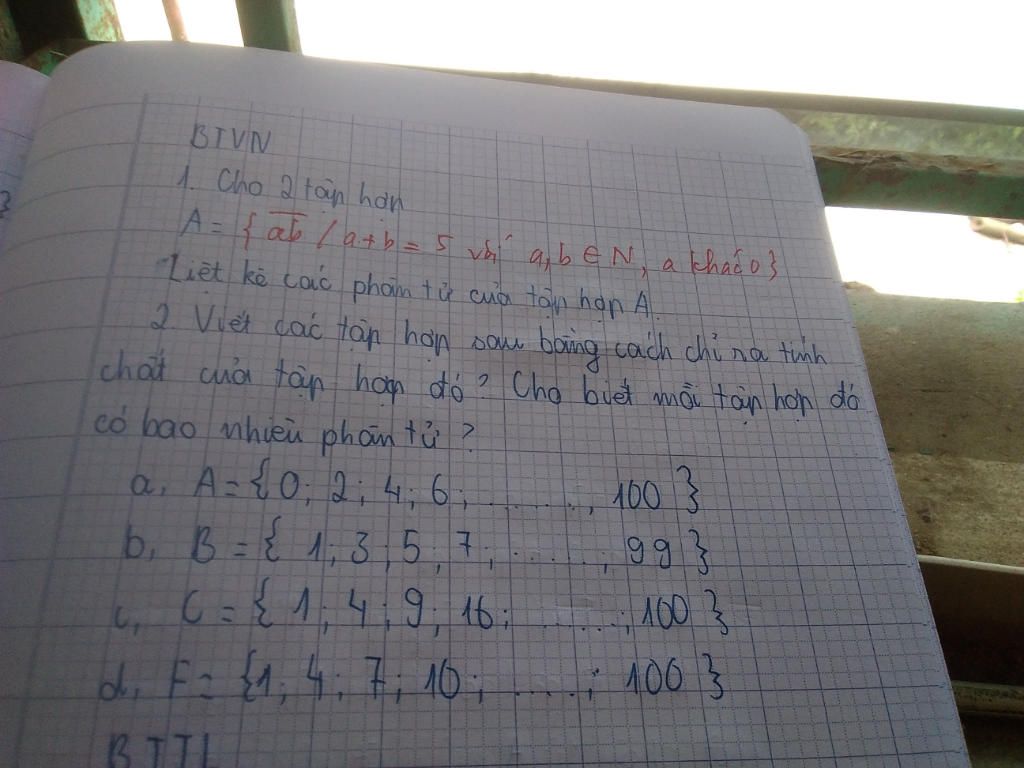 BTVN
1. Cho 2 tập hợp
A = { ab / a + b = 5 với a, b ∈ N, a khác 0 }
Liệt kê các phần tử của tập hợp A.
2. Viết các tập hợp sau bằng cách chỉ ra tính
chất của tập hợp đó ? Cho biết mỗi tập hợp đó
có bao nhiêu phần tử ?
a, A = { 0 ; 2 ; 4 ; 6 ; ........ ; 100 }
b, B = { 1 ; 3 ; 5 ; 7 ; ....... ; 99 }
c, C = { 1 ; 4 ; 9 ; 16 ; ....... ; 100 }
d, F = { 1 ; 4 ; 7 ; 10 ; ..... ; 100 }
BTTL